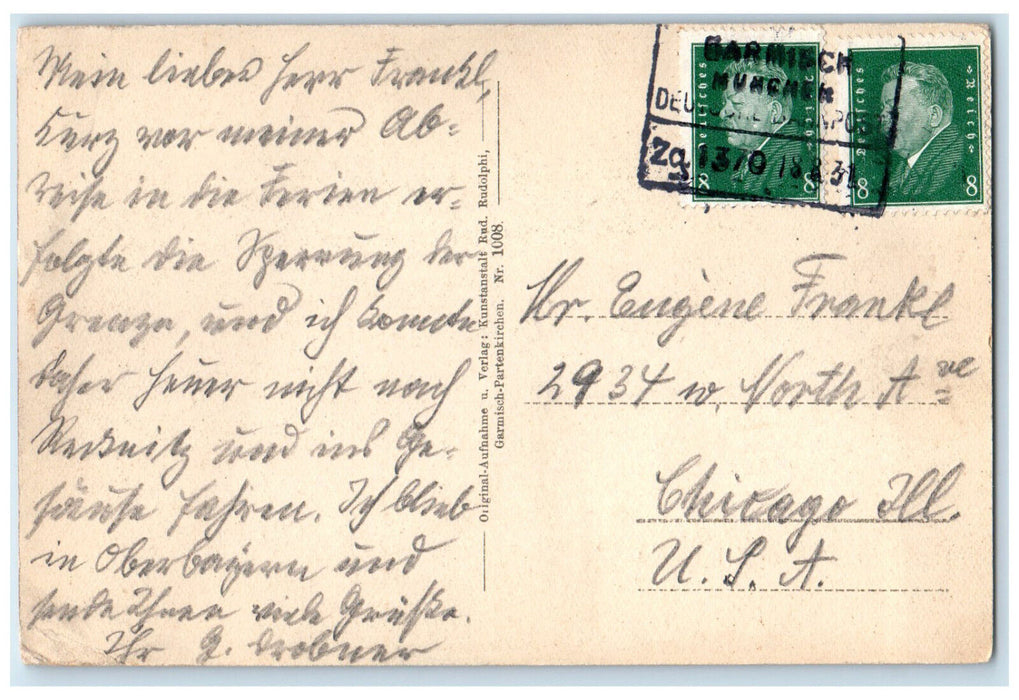 Mein lieber Herr Frankl,
Kurz vor meiner Ab-
reise in die Ferien er-
folgte die Sperrung der
Grenze, und ich konnte
daher heuer nicht nach
und ins Ge-
säuse fahren. Ich blieb
in Oberbayern und
sende Ihnen viele Grüße.
Ihr G. Drobner
Original-Aufnahme u. Verlag: Kunstanstalt Rud. Rudolphi,
Garmisch-Partenkirchen. Nr. 1008.
GARMISCH
MÜNCHEN
Zg 1370 18.8.31
Deutsches Reich
8 8
Deutsches Reich
8 8
Mr. Eugène Frankl
2934 w. North Ave
Chicago Ill.
U. S. A.